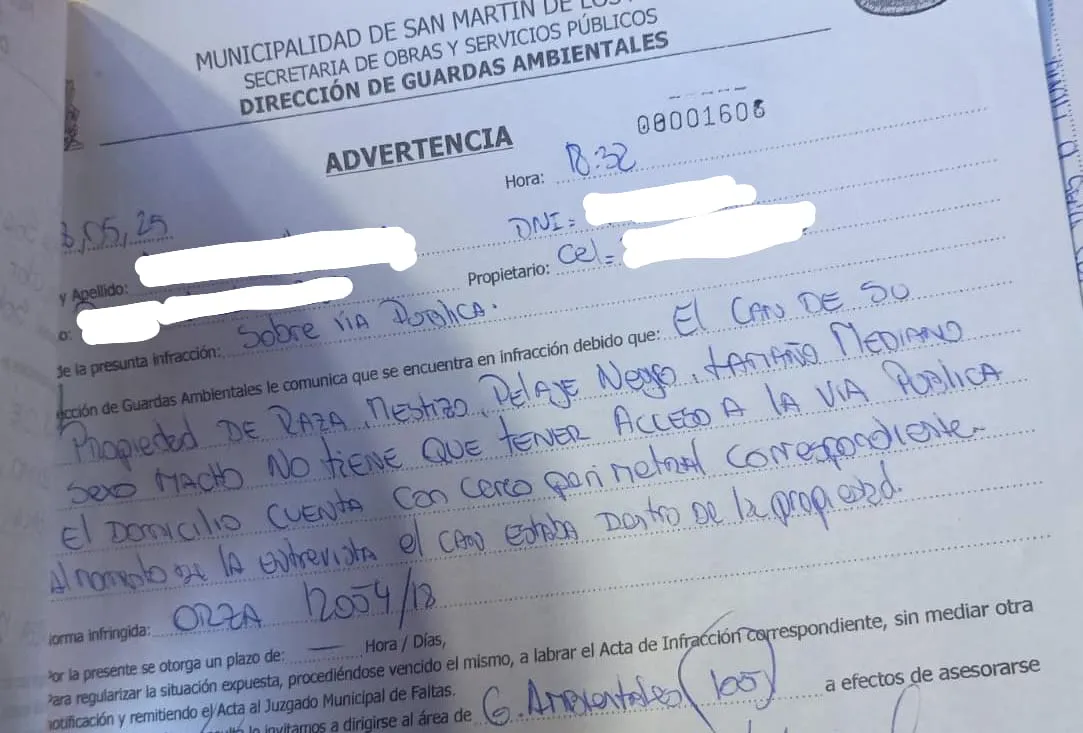 MUNICIPALIDAD DE SAN MARTIN DE LOS
SECRETARIA DE OBRAS Y SERVICIOS PÚBLICOS
DIRECCIÓN DE GUARDAS AMBIENTALES
ADVERTENCIA
00001606
Hora: 18:32
3,05,25
DNI =
y Apellido:
Propietario: Cel =
o:
de la presunta infracción: Sobre VIA PUBLICA.
ección de Guardas Ambientales le comunica que se encuentra en infracción debido que: El CAN DE SU
PROPIEDAD DE RAZA, MESTIZO, PELAJE NEGRO, TAMAÑO MEDIANO
SEXO MACHO NO TIENE QUE TENER ACCESO A LA VIA PUBLICA
EL DOMICILIO CUENTA CON CERCO perimetral CORRESPONDIENTE.
Al momento de la entrevista el CAN ESTABA DENTRO DE la propiedad.
norma infringida: ORZA 12054/18
Por la presente se otorga un plazo de: — Hora / Días,
Para regularizar la situación expuesta, procediéndose vencido el mismo, a labrar el Acta de Infracción correspondiente, sin mediar otra
notificación y remitiendo el Acta al Juzgado Municipal de Faltas.
lo invitamos a dirigirse al área de G. Ambientales (105) a efectos de asesorarse